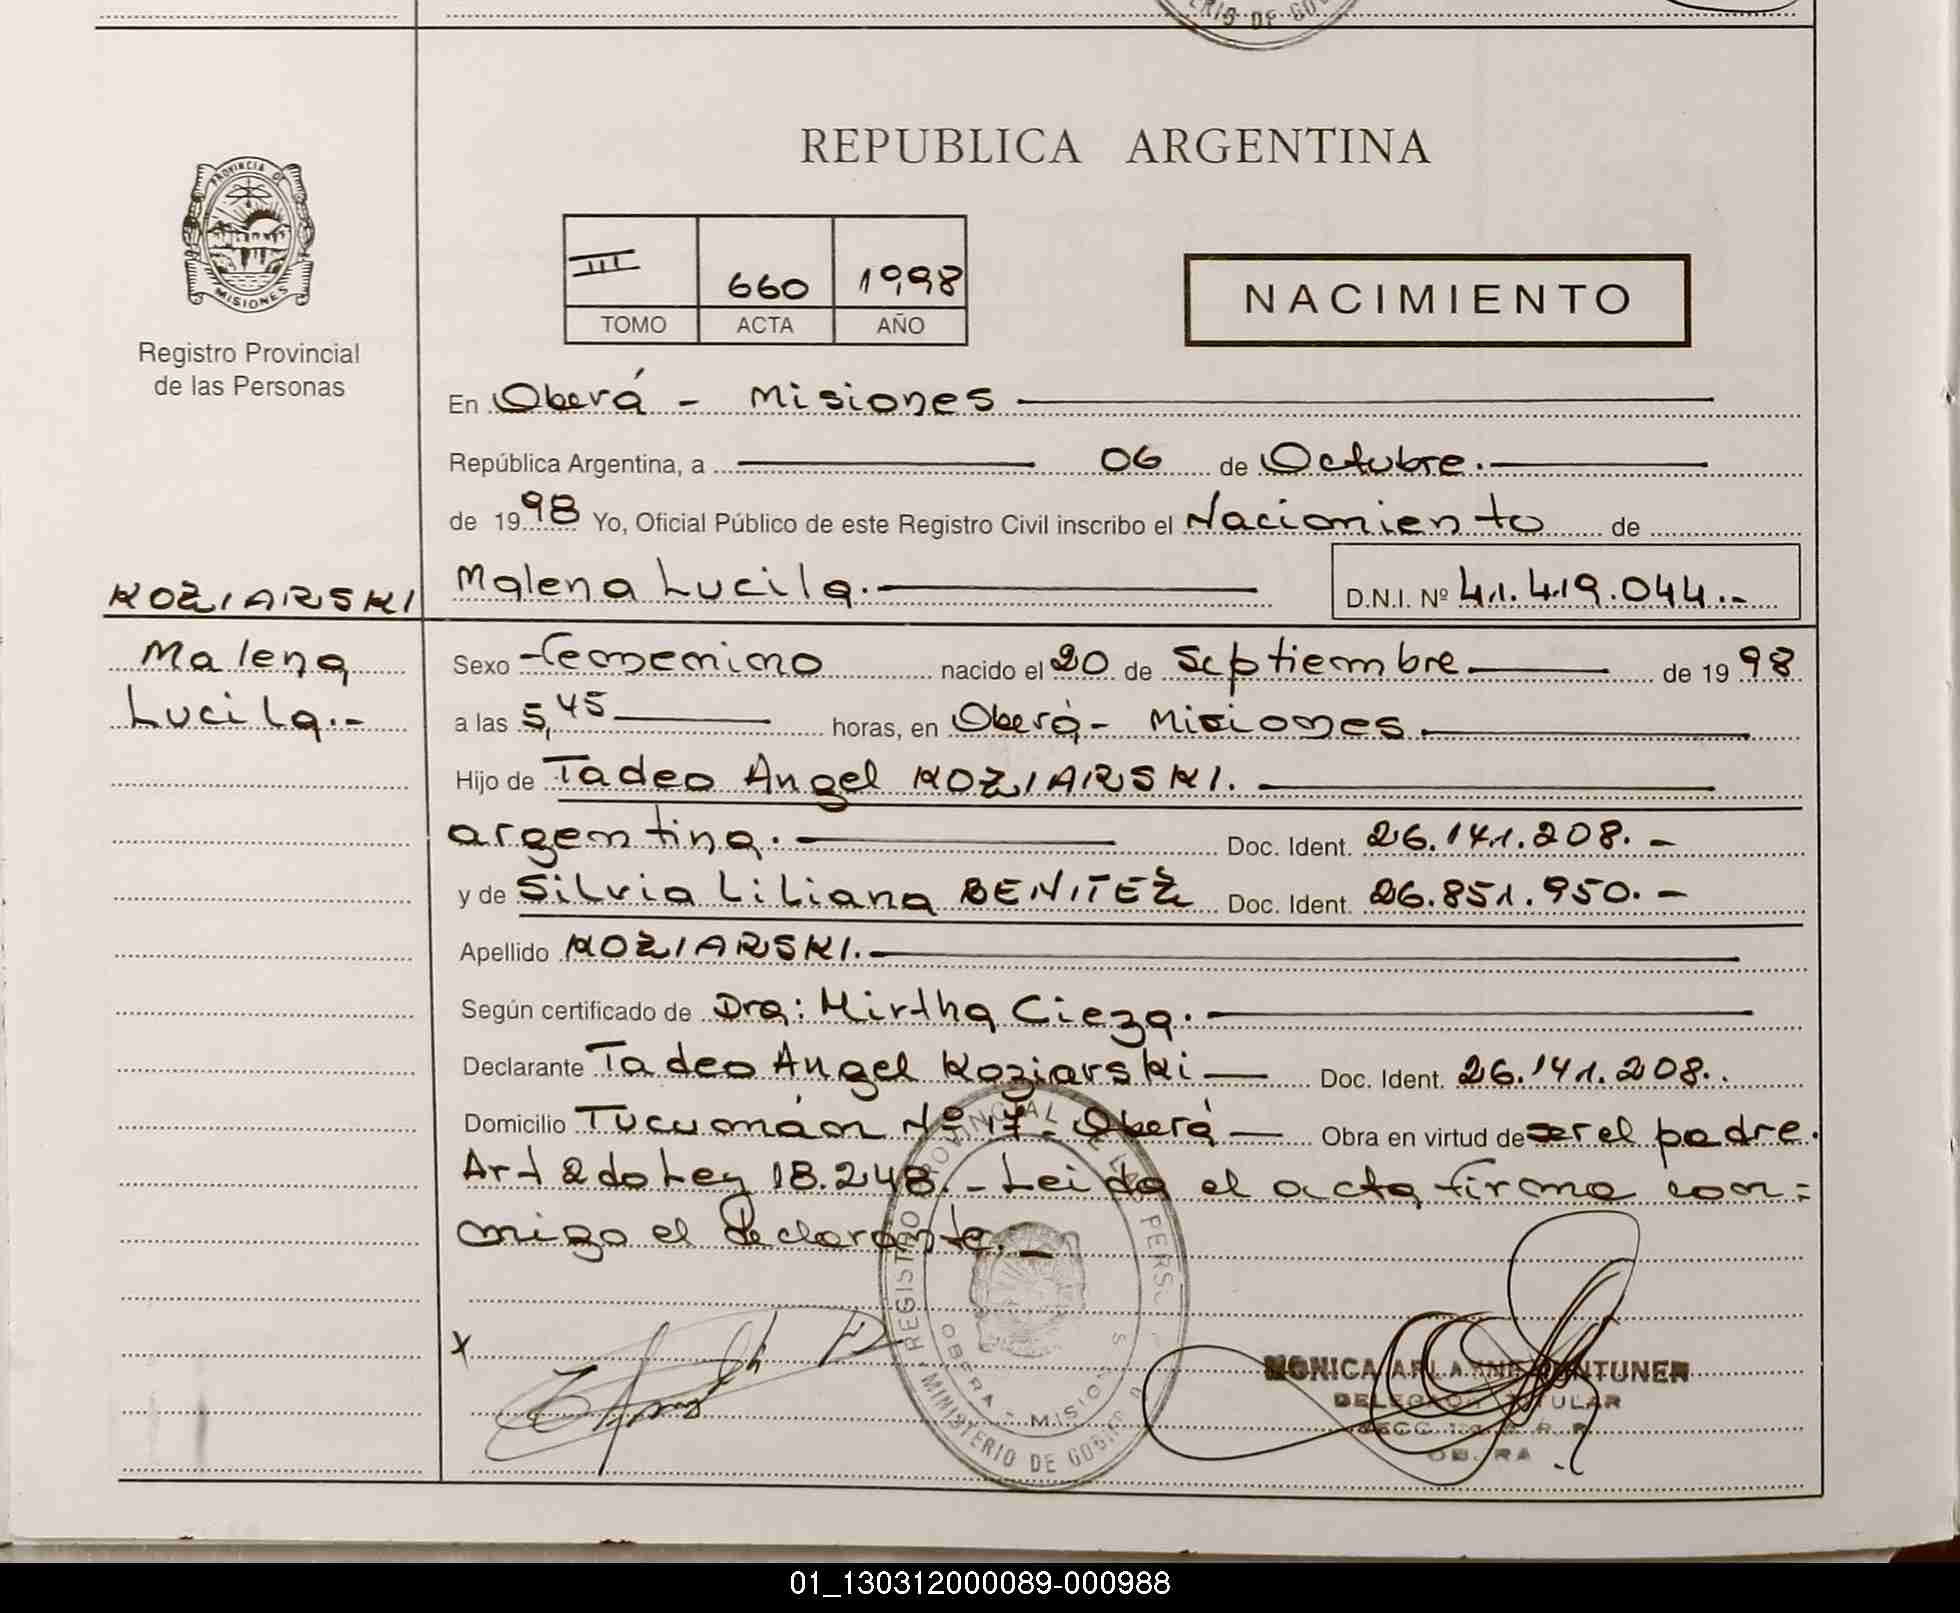 ERIO DE GO
REPUBLICA ARGENTINA
PROVINCIA DE
MISIONES
Registro Provincial
de las Personas
III 660 1998
TOMO ACTA AÑO
NACIMIENTO
En Oberá - Misiones
República Argentina, a 06 de Octubre.
de 1998 Yo, Oficial Público de este Registro Civil inscribo el Nacimiento de
KOZIARSKI Malena Lucila. D.N.I. Nº 41.419.044.-
Malena Sexo Femenino nacido el 20 de Septiembre de 1998
Lucila.- a las 5,45 horas, en Oberá - Misiones.
Hijo de Tadeo Angel KOZIARSKI.
argentina. Doc. Ident. 26.141.208.-
y de Silvia Liliana BENITEZ Doc. Ident. 26.851.950.-
Apellido KOZIARSKI.
Según certificado de Dra: Mirtha Cieza.
Declarante Tadeo Angel Koziarski Doc. Ident. 26.141.208..
Domicilio Tucumán Nº 17. Oberá Obra en virtud de ser el padre.
Art 2do Ley 18.248.- Leida el acta firma con=
migo el declarante.-
REGISTRO PROVINCIAL DE LAS PERS.
OBERA - MISIONES
MINISTERIO DE GOB
X
MONICA
DELEGADA TITULAR
SECC
OBERA
01_130312000089-000988